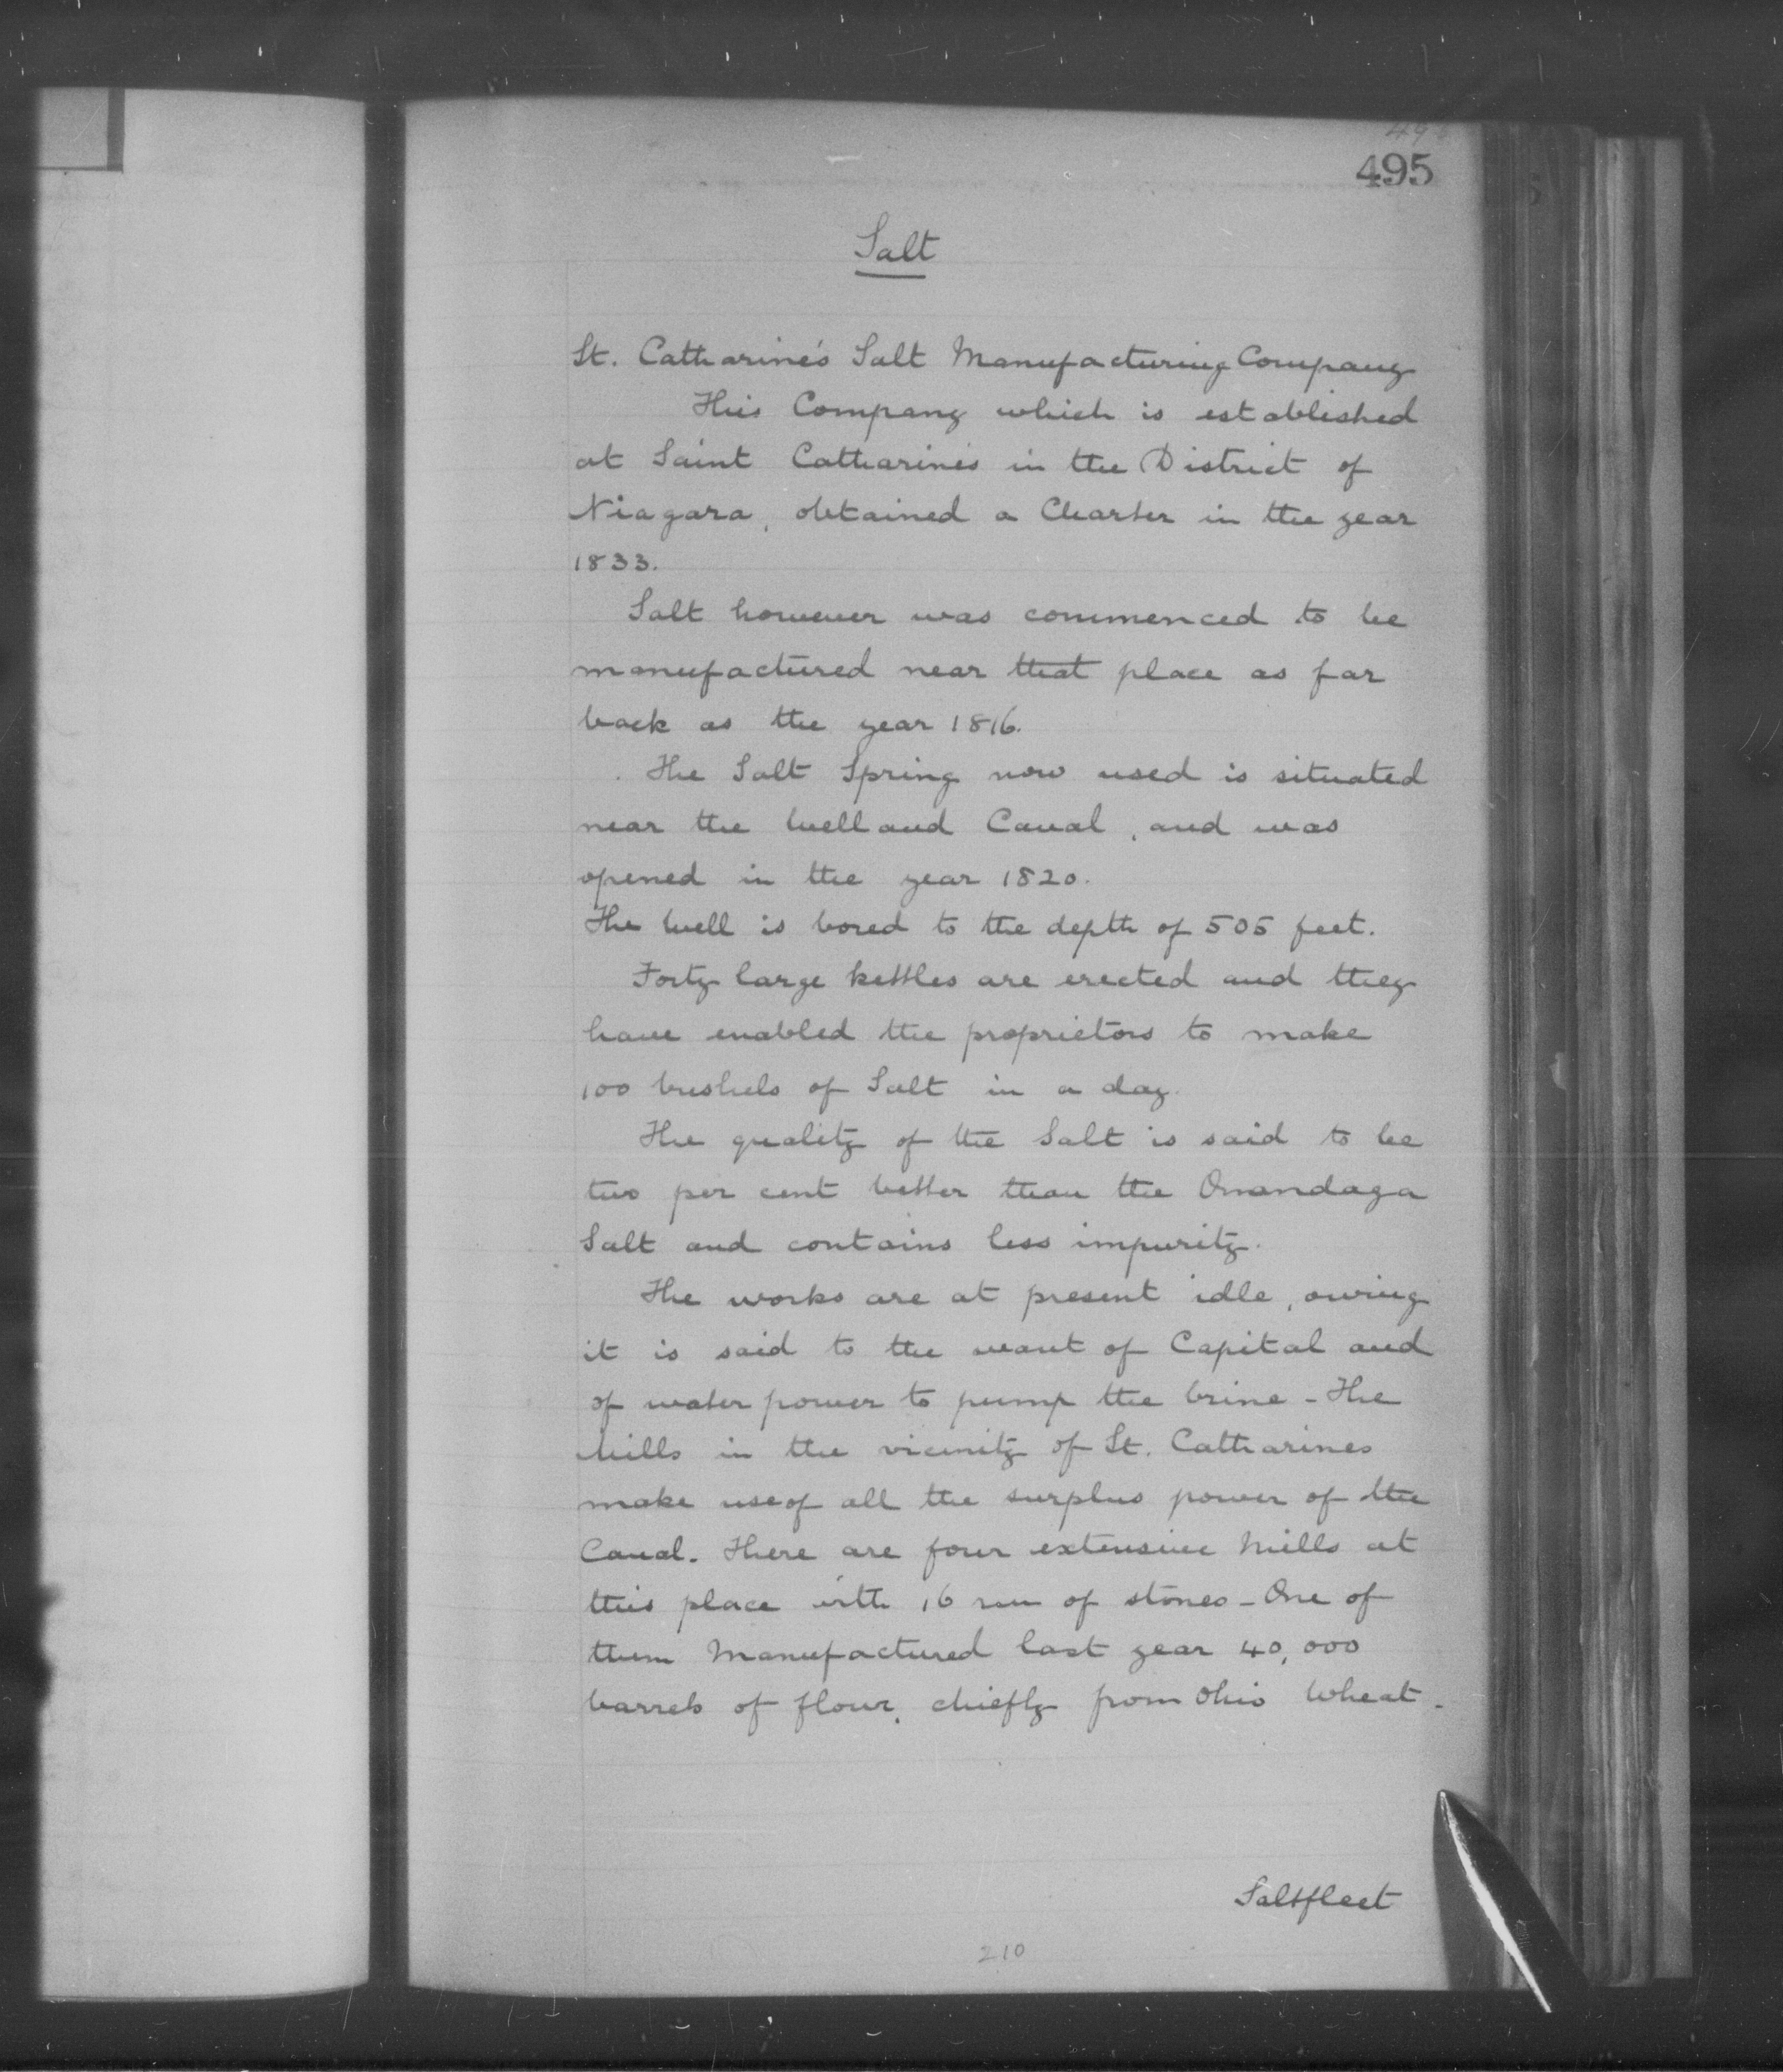 495
Salt
St. Catharine's Salt Manufacturing Company
This Company which is established
at Saint Catharine's in the District of
Niagara, obtained a Charter in the year
1833.
Salt however was commenced to be
manufactured near that place as far
back as the year 1816.
The Salt Spring now used is situated
near the Welland Canal, and was
opened in the year 1820.
The Well is bored to the depth of 505 feet.
Forty large kettles are erected and they
have enabled the proprietors to make
100 bushels of Salt in a day.
The quality of the Salt is said to be
two per cent better than the Onandaga
Salt and contains less impurity.
The works are at present idle, owing
it is said to the want of Capital and
of water power to pump the brine - The
Mills in the vicinity of St. Catharines
make use of all the surplus power of the
Canal. There are four extensive Mills at
this place with 16 run of stones - One of
them Manufactured last year 40,000
barrels of flour, chiefly from Ohio Wheat.
Saltfleet
210